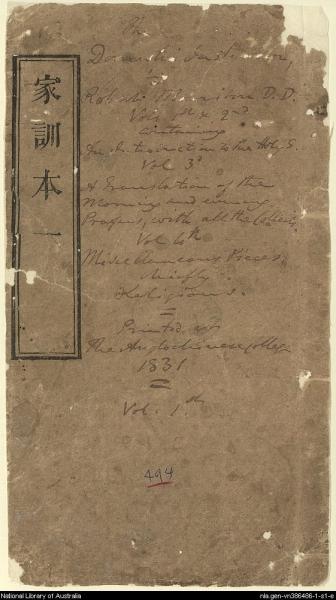 家訓本一
The
Domestic Instructor,
by
Robert Morrison D.D.
Vols 1st & 2nd
Containing
An Introduction to the Holy S.
Vol 3d
A translation of the
Morning and evening
Prayers, with all the Collects
Vol 4th
Miscellaneous Pieces
chiefly
Religious.
Printed at
The Anglochinese College
1831
Vol. 1.th
494
National Library of Australia
nla.gen-vn386486-1-s1-v